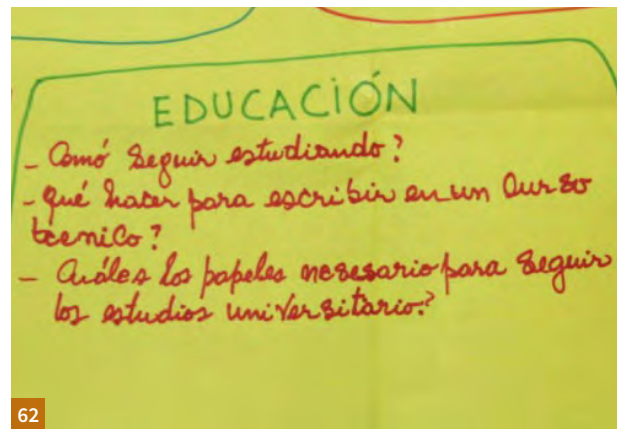 EDUCACIÓN
- Comó seguir estudiando?
- qué hacer para escribir en un Curso
tecnico?
- Cuáles los papeles nesesario para seguir
los estudios universitario?
62